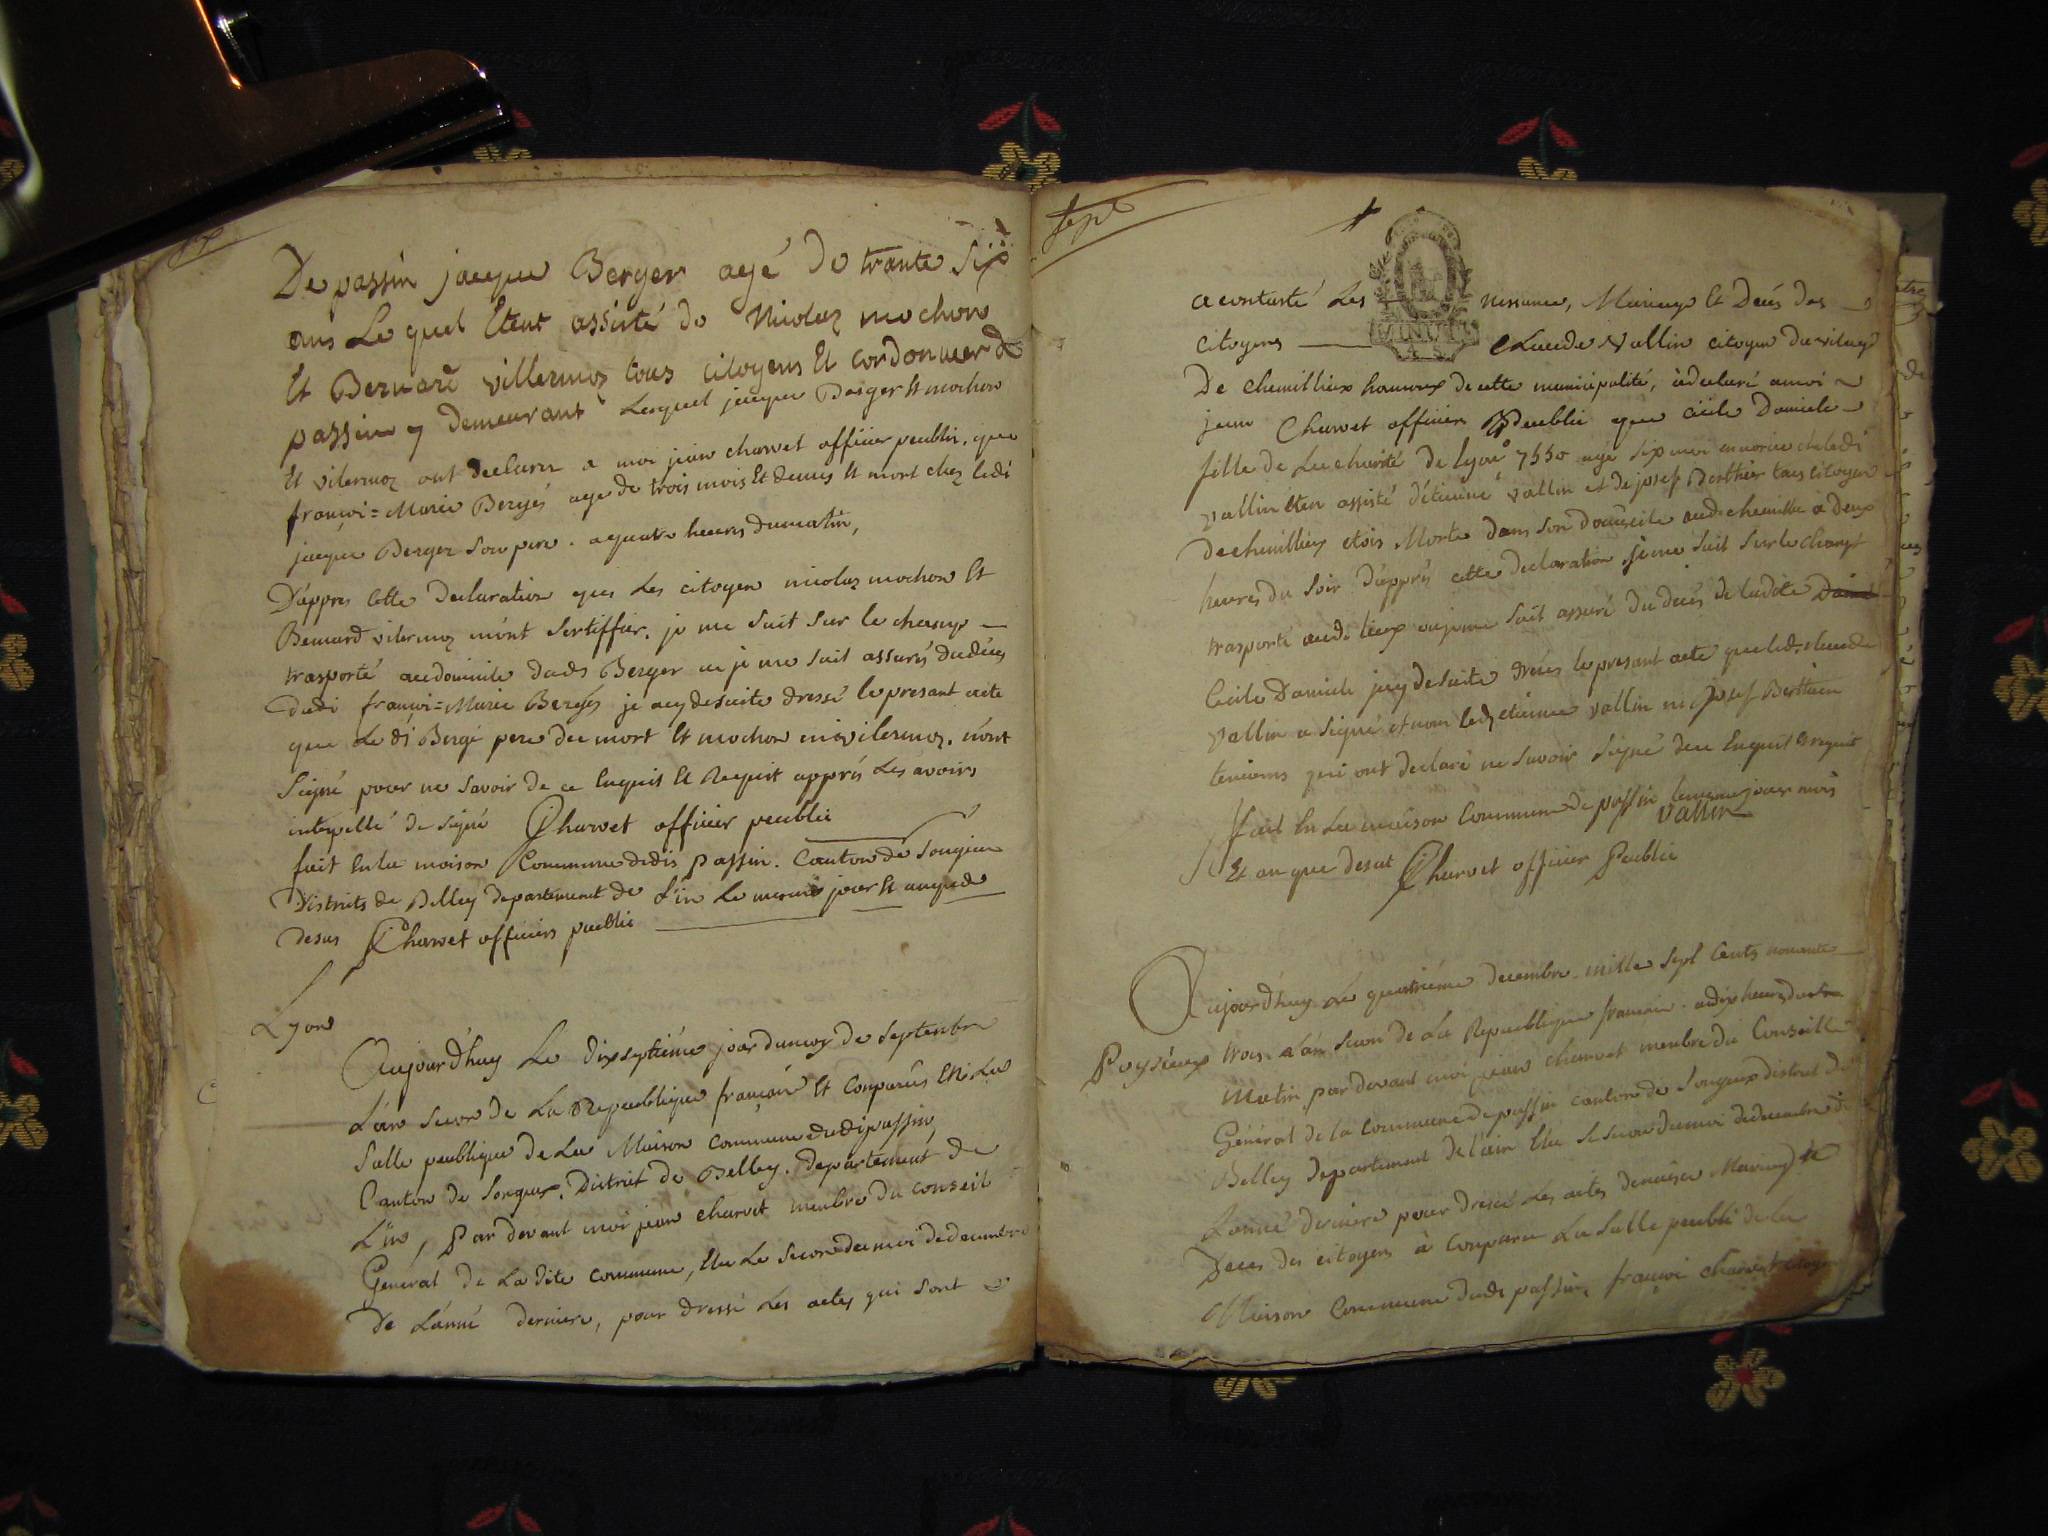 De passin jacque Berger agé de trante six
ans Le quel Etent assisté de Nicolaz mochon
Et Bernard villermoz tous citoyens Et cordonnier de
passin y demeurant Lesquel jacque Berger Et mochon
Et vilermoz ont declarer a moi jean charvet officier peublic, que
françoi=Marie Bergés age de trois mois Et demis Et mort chez ledi
jacque Berger son pere. a quatre heures du matin,
D'appres cette declaration que Les citoyen nicolaz mochon Et
Bernard vilermoz m'ont sertiffier, je me suit sur le champ
trasporté au domicile dudi Berger ou je me suit assurés du décés
dudi françoi=Marie Bergés je aey desuite dressé le presant acte
que Le di Bergé pere du mort Et mochon ni vilermoz, n'ont
Signé pour ne savoir de ce Enquis Et Requit appres Les avoirs
interpellé de signé Charvet officier peublic
fait En la maison Commune dudis passin. Canton de Songieu
Districts de Belley departement de L'in Le meme jour Et anque
desus Charvet officiers pueblic
Lyon
Aujourdhuy Le dixseptiéme jour du moy de septembre
L'an secon de La Republique françoise Et Comparus En La
Salle peublique de La Maison commune dudi passin
Canton de Songeux. District de Belley. departement de
L'in, Par devant moi jean charvet menbre du conseil
Genéral de La dite commune, Elu Le secon du moi de decembre
De L'anné derniere, pour dressé Les actes qui sont
sept
a constasté Les nessance, Mariage Et Decés des
MINUTE
citoyens Claude Vallin citoyen du vilage
De chemillieux hameaux de cette municipalité, à declaré a moi
jean Charvet officier Peublic que cécile Daniele
fille de La charité de Lyon 7550 agé six moi en norice cheledi
Vallin Eten assisté d'étienne vallin et de josef Berthier tous citoyen
De chemillieu etois Morte dans son domicile audi chemillie à deux
heures du soir D'apprés cette declaration je me suit sur le champt
trasporté audi lieux ou je me suit assuré du decés de ladite
Cécile Daniele j'ey desuite dréés le presant acte que led. claude
Vallin a signé et non led. etienne vallin ni josef Berthier
temiens qui ont declaré ne savoir signé de ce Enquit Erequit
fait En La maison Commune de passin lememe jour mois
Vallin
Et an que desut Charvet officier Peublic
Aujourdhuy Le quatriéme decembre mille sept Cents nonante
Poysieux trois L'an secon de La Republique francaise. a dix heures du
Matin, par devant moi jean charvet menbre du Conseille
Général de la Commune de passin canton de Songeux district de
Belley departement de l'ain Elu Le secon du moi de decembre de
L'anné derniere pour dresé Les actes de naisance Mariag Et
Deces des citoyens à Comparu La Salle peublic de la
Maison Commune dudi passin, françoi charvet citoyen